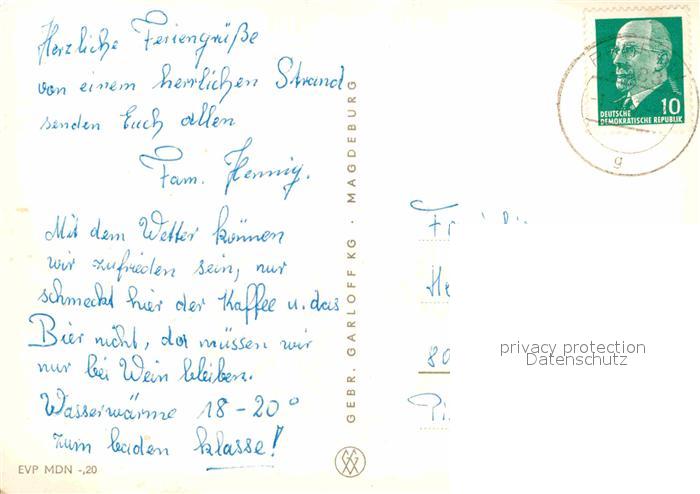 Herzliche Feriengrüße
von einem herrlichen Strand
senden Euch allen
Fam. Hennig.
Mit dem Wetter können
wir zufrieden sein, nur
schmeckt hier der Kaffee u. das
Bier nicht, da müssen wir
nur bei Wein bleiben.
Wasserwärme 18-20°
zum baden klasse!
EVP MDN -,20
GEBR. GARLOFF KG · MAGDEBURG
10
DEUTSCHE
DEMOKRATISCHE REPUBLIK
g
80
privacy protection
Datenschutz